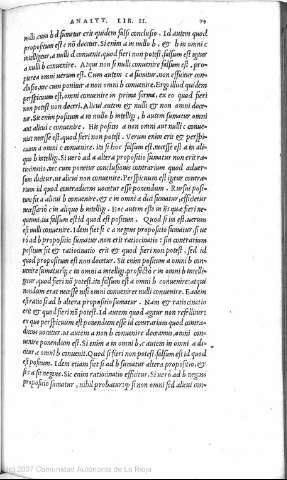 ANALYT. LIB. II.
nulli, cum b d sumetur erit quidem falsi conclusio. Id autem quod
propositum est e nō docetur. Si enim a in nullo b, & b in omni c
intelligitur, a nulli d conuenit, quod fieri non potest. falsum est igitur
a nulli b conuenire. Atqui non si nulli conuenire falsum est,
omni uerum est. Cum autem c a sumitur, non efficitur con-
clusio, nec cum ponitur a non omni b conuenire. Ergo illud quidem
perspicuum est, omni conuenire in prima forma, ex eo quod fieri
non potest non doceri. Alicui autem & nulli & non omni doce-
tur. Sic enim positum a in nullo b intellig, b autem sumatur omni
aut alicui c conuenire. His positis a non omni aut nulli c conue-
niat necesse est, quod fieri nō potest. Verum enim est & perspi-
cuum a omni c conuenire. ita si hoc falsum est, necesse est a in ali-
quo b intelligi. Si uerò ad a altera propositio sumatur non erit ra-
tiocinatio, nec cum ponetur conclusionis contrarium quod aduer-
sum dicitur, ut alicui non conuenire. Perspicuum est igitur contra-
rium id quod contradicens uocatur esse ponendum. Rursus posi-
tum sit a alicui b conuenire, & c in omni a dici sumatur efficietur
necessario c in aliquo b intelligi. Hoc autem esto in iis quae fieri ne-
queunt, ita falsum est id quod est positum. Quod si ita est, uerum
est nulli conuenire. Idem fiet si c a negans propositio sumatur. si ue-
rò ad b propositio sumatur, non erit ratiocinatio: sin contrarium
positum sit & ratiocinatio erit & quod fieri non potest. sed id
quod propositum est non docetur. Sic enim positum a omni b con-
uenire
gitur, quod fieri nō potest. ita falsum est a omni b conuenire: atqui
nondum erat necesse nisi omni conueniret nulli conuenire. Eadem
est ratio si ad b altera propositio sumatur. Nam & ratiocinatio
erit & quod fieri nō potest. Id autem quod agitur non refellitur:
ex quo perspicuum est ponendum esse id contrarium quod contra-
dicens uocatur. ut autem a non b conuenire doceatur, omni con-
uenire ponendum est. Si enim a in omni b, c autem in omni a di-
citur, c omni b conuenit. Quod si fieri non potest, falsum est id quod
est positum. Idem etiam fiet si ad b sumatur altera propositio, &
si c a sit negans. Sic enim ratiocinatio efficitur. Si uerò ad b negans
propositio sumatur, nihil probatur, si non omni sed alicui con-
(c) 2007 Comunidad Autónoma de La Rioja